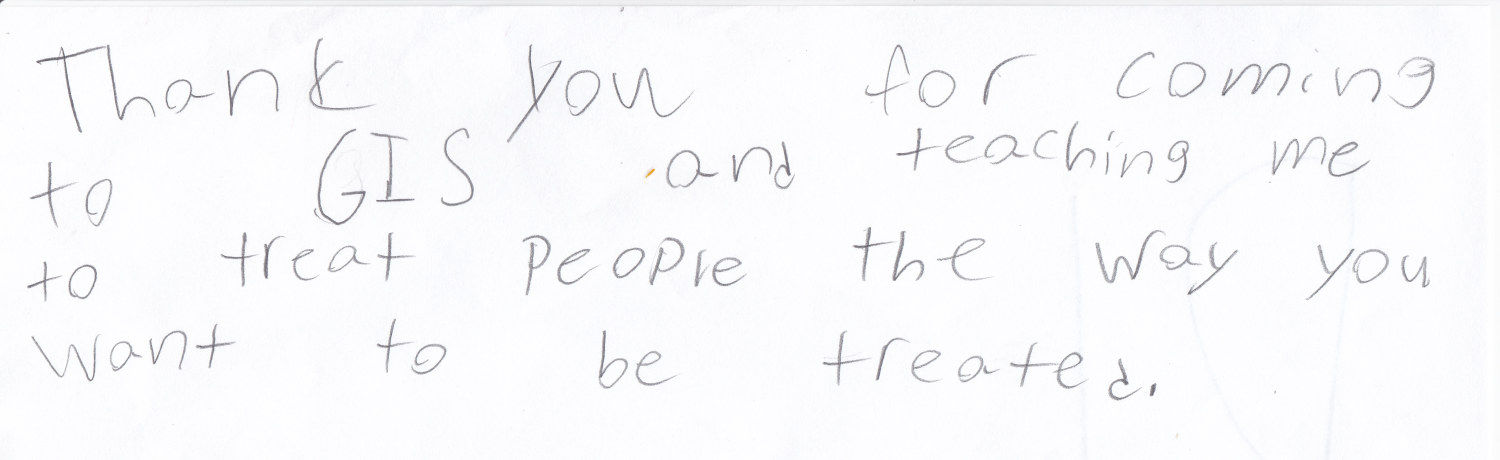 Thank you for coming
to GIS and teaching me
to treat people the way you
want to be treated.